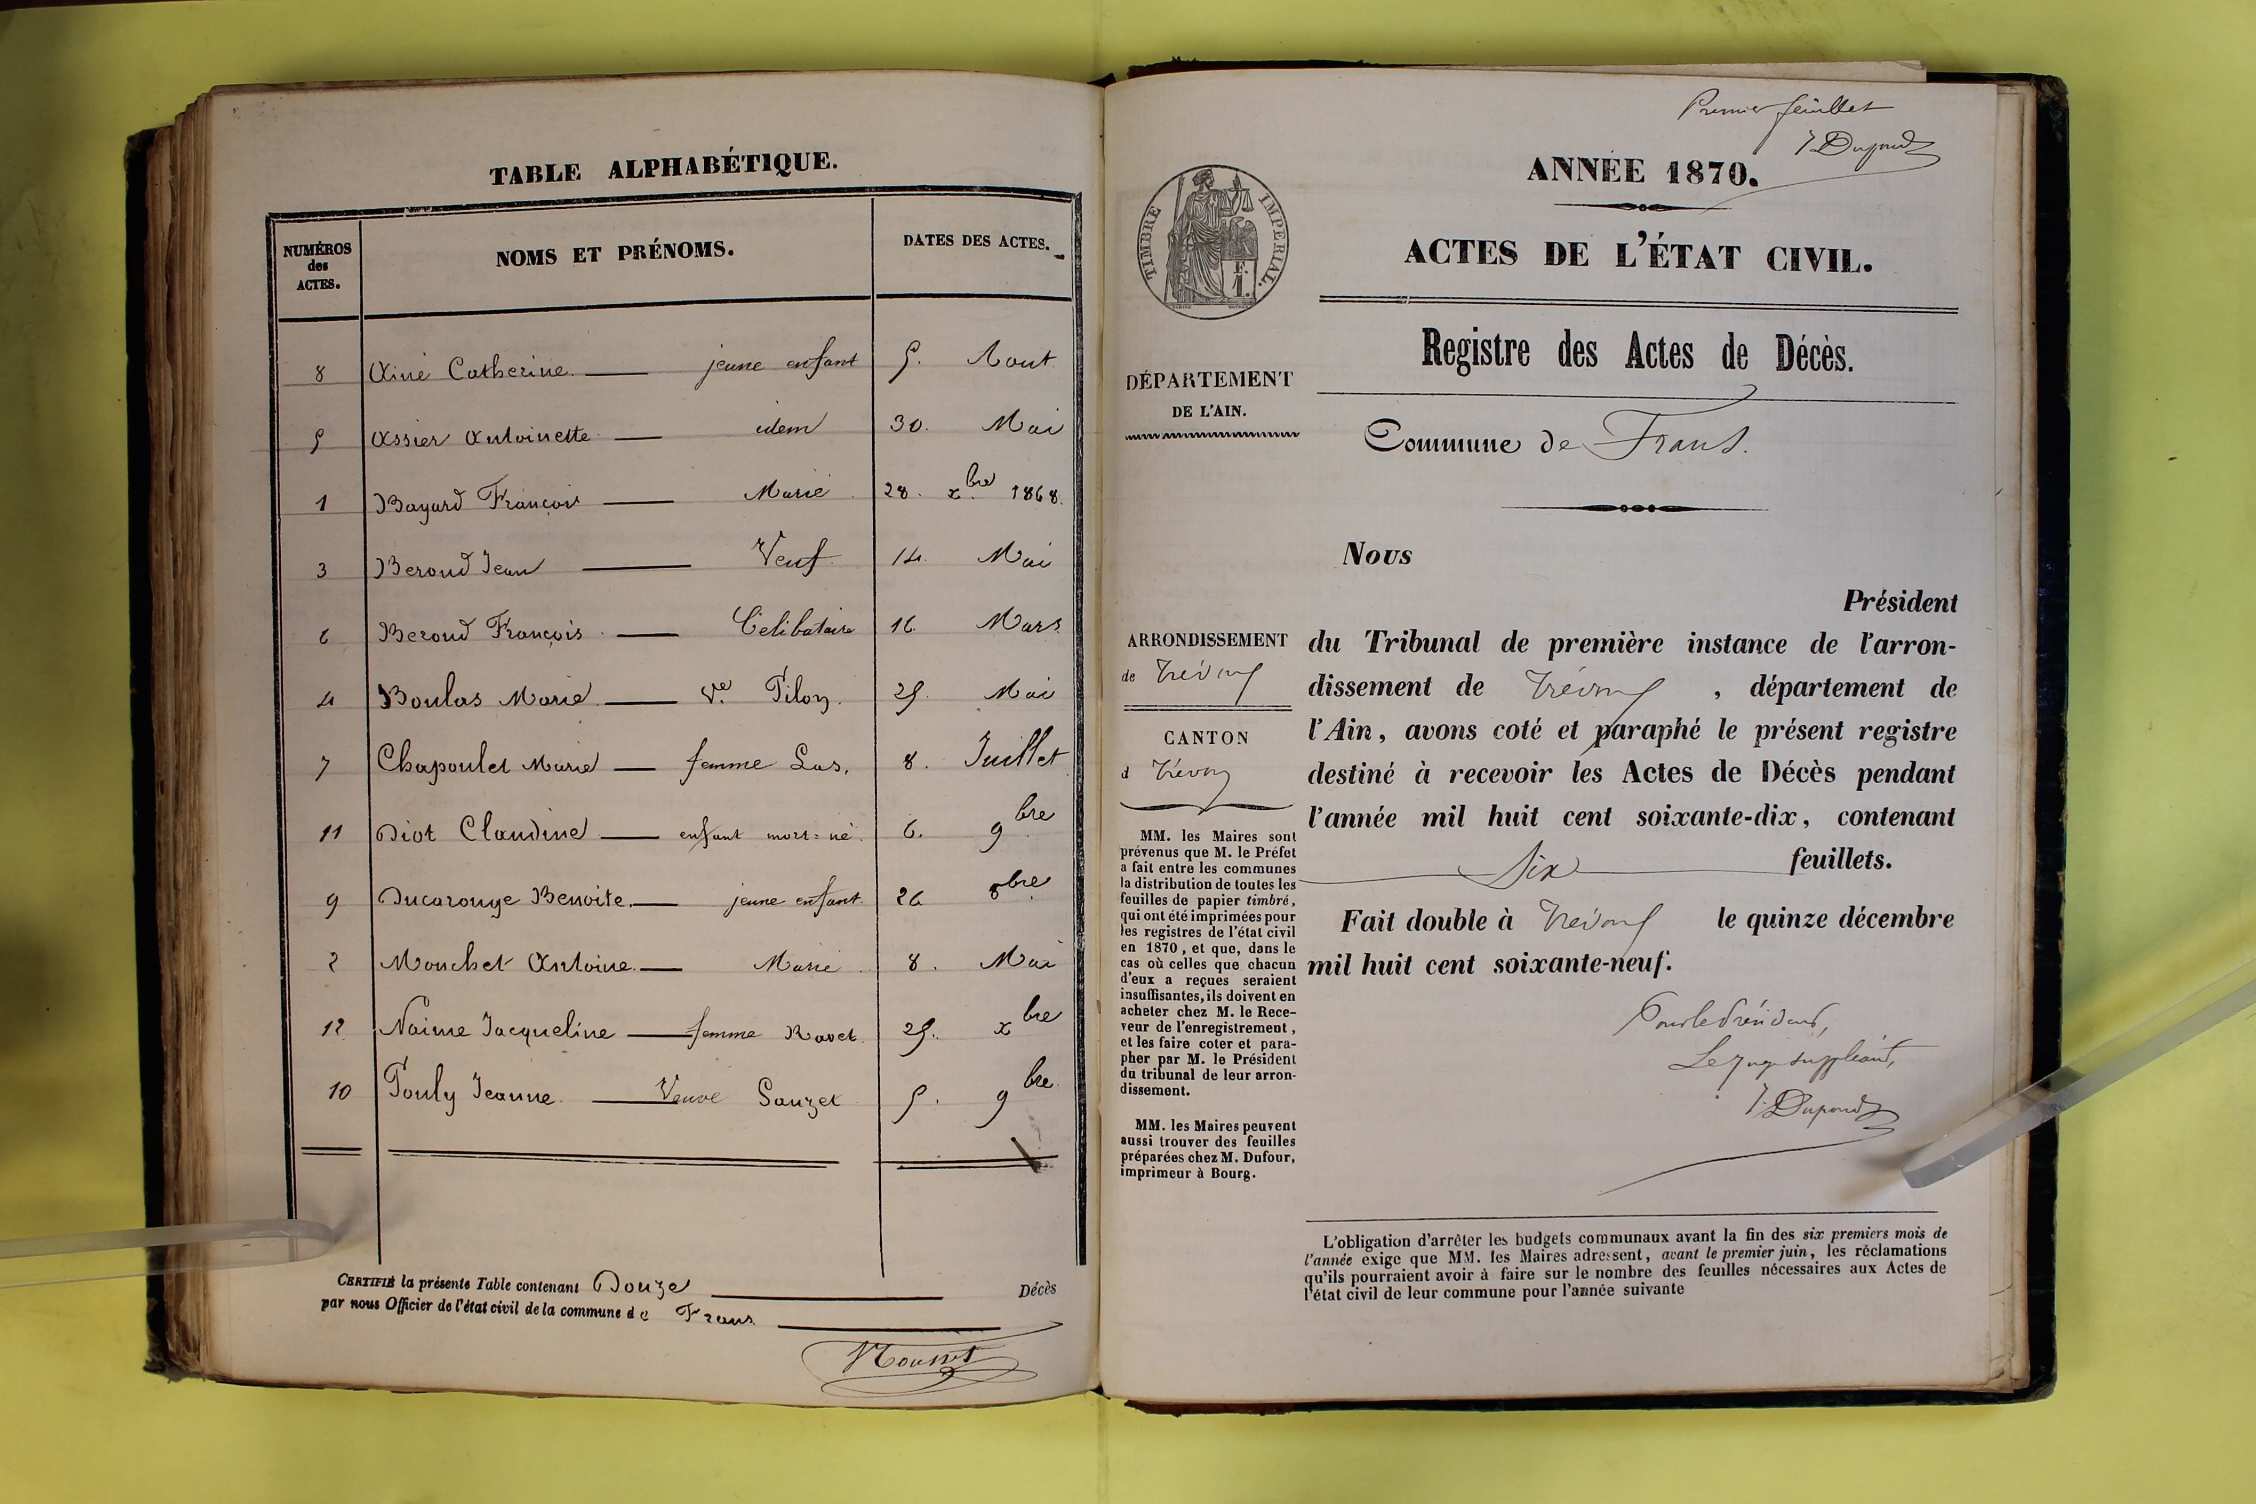 TABLE ALPHABÉTIQUE.
NUMÉROS des ACTES. NOMS ET PRÉNOMS. DATES DES ACTES.
8 Ainé Catherine jeune enfant 5. Aout
5 Assier Antoinette idem 30. Mai
1 Bayard François Marié 28. xbre 1868.
3 Beroud Jean Veuf 14. Mai
6 Beroud François Célibataire 16. Mars
4 Boulas Marie Ve Pilon 25. Mai
7 Chapoulet Marie femme Las. 8. Juillet
11 Diot Claudine enfant mort=né. 6. 9bre
9 Ducarouge Benoite. jeune enfant 26 8bre
2 Monchet Antoine. Marié 8. Mai
12 Naime Jacqueline femme Ravet. 25. xbre
10 Pouly Jeanne. Veuve Sauzet 5. 9bre
CERTIFIÉ la présente Table contenant Douze Décès
par nous Officier de l'état civil de la commune de Frans
Premier feuillet
J Dupond
ANNÉE 1870.
ACTES DE L'ÉTAT CIVIL.
TIMBRE IMPÉRIAL.
F.
1.
Registre des Actes de Décès.
DÉPARTEMENT
DE L'AIN.
Commune de Frans.
Nous
Président
du Tribunal de première instance de l'arron-
dissement de Trévoux, département de
l'Ain, avons coté et paraphé le présent registre
destiné à recevoir les Actes de Décès pendant
l'année mil huit cent soixante-dix, contenant
Six feuillets.
Fait double à Trévoux le quinze décembre
mil huit cent soixante-neuf.
Pour le Président,
Le Juge suppléant,
J. Dupond
ARRONDISSEMENT
de Trévoux
CANTON
d Trévoux
MM. les Maires sont
prévenus que M. le Préfet
a fait entre les communes
la distribution de toutes les
feuilles de papier timbré,
qui ont été imprimées pour
les registres de l'état civil
en 1870, et que, dans le
cas où celles que chacun
d'eux a reçues seraient
insuffisantes, ils doivent en
acheter chez M. le Rece-
veur de l'enregistrement,
et les faire coter et para-
pher par M. le Président
du tribunal de leur arron-
dissement.
MM. les Maires peuvent
aussi trouver des feuilles
préparées chez M. Dufour,
imprimeur à Bourg.
L'obligation d'arrêter les budgets communaux avant la fin des six premiers mois de
l'année exige que MM. les Maires adressent, avant le premier juin, les réclamations
qu'ils pourraient avoir à faire sur le nombre des feuilles nécessaires aux Actes de
l'état civil de leur commune pour l'année suivante